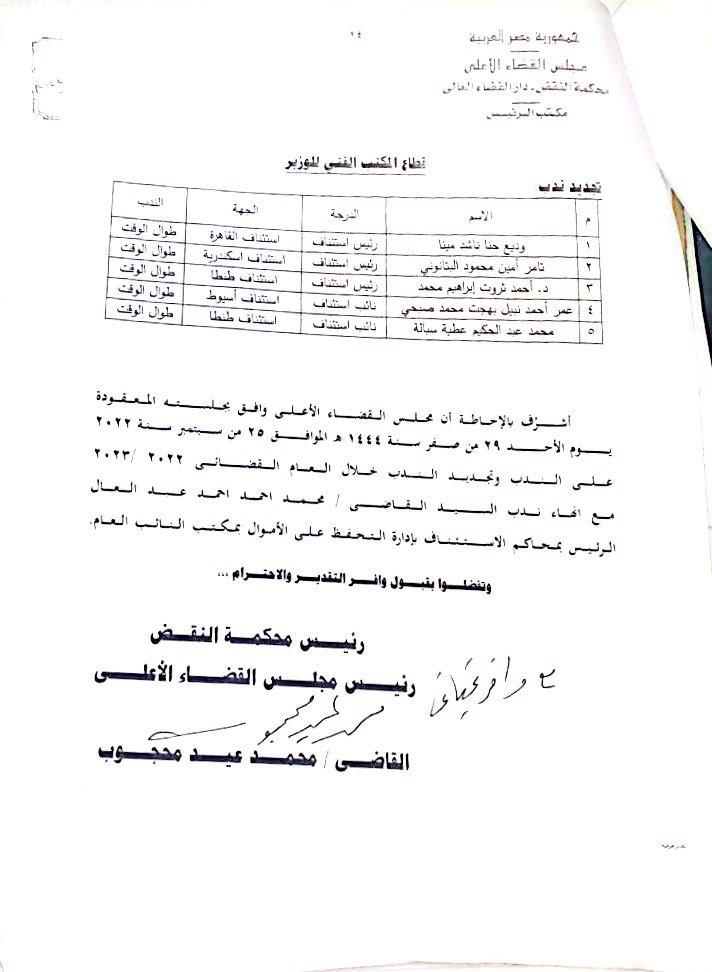 ١٤
جمهورية مصر العربية
مجلس القضاء الأعلى
محكمة النقض ـ دار القضاء العالى
مكتب الرئيس
قطاع المكتب الفنى للوزير
تجديد ندب
م الاسم الدرجة الجهة الندب
١ وديع حنا ناشد مينا رئيس استئناف استئناف القاهرة طوال الوقت
٢ تامر أمين محمود البتانوني رئيس استئناف استئناف اسكندرية طوال الوقت
٣ د. أحمد ثروت إبراهيم محمد رئيس استئناف استئناف طنطا طوال الوقت
٤ عمر أحمد نبيل بهجت محمد صبحي نائب استئناف استئناف أسيوط طوال الوقت
٥ محمد عبد الحكيم عطية سبالة نائب استئناف استئناف طنطا طوال الوقت
أتشرف بالإحاطة أن مجلس القضاء الأعلى وافق بجلسته المعقودة
يوم الأحد ٢٩ من صفر سنة ١٤٤٤ هـ الموافق ٢٥ من سبتمبر سنة ٢٠٢٢
على الندب وتجديد الندب خلال العام القضائى ٢٠٢٢ /٢٠٢٣
مع انهاء ندب السيد القاضى / محمد احمد احمد عبد العال
الرئيس بمحاكم الاستئناف بإدارة التحفظ على الأموال بمكتب النائب العام.
وتفضلوا بقبول وافر التقدير والاحترام ...
رئيس محكمة النقض
رئيس مجلس القضاء الأعلى
مع وافر تحياتى
القاضى / محمد عيد محجوب